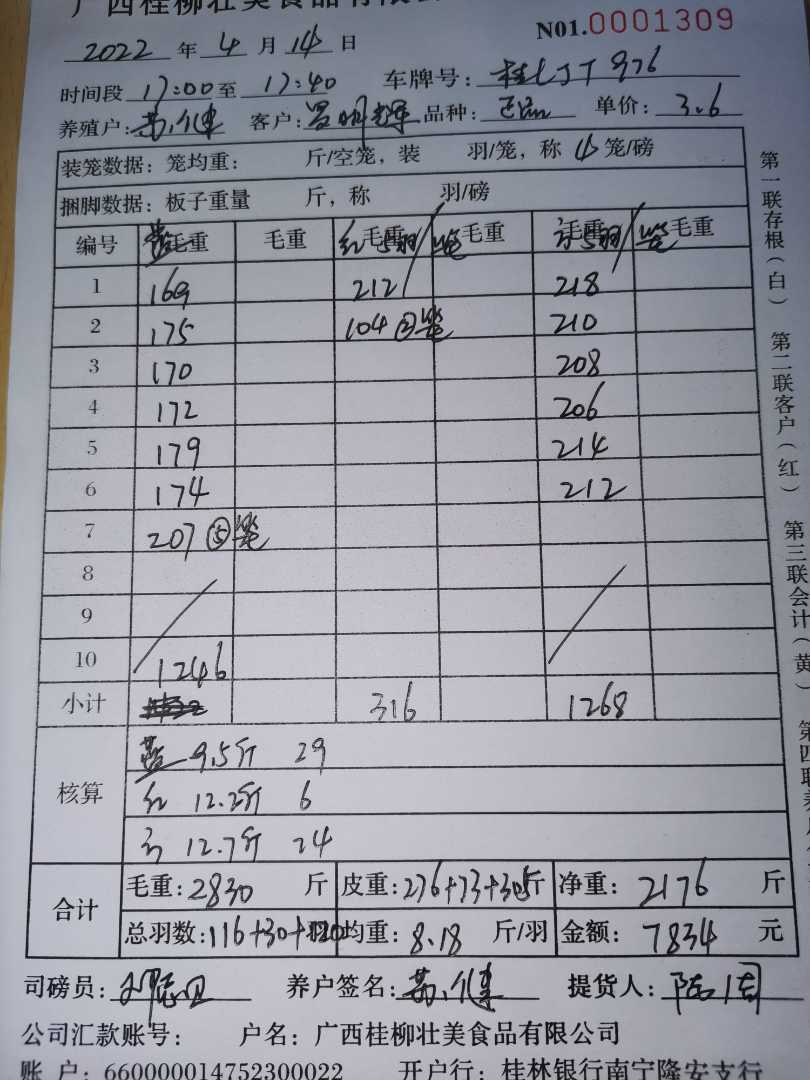 广西桂柳壮美食品有限公
N01.0001309
2022 年 4 月 14 日
时间段 17:00 至 17:40 车牌号: 976
养殖户: 客户: 品种: 单价: 3.6
装笼数据: 笼均重: 斤/空笼, 装 羽/笼, 称 4 笼/磅
捆脚数据: 板子重量 斤, 称 羽/磅
编号 毛重 毛重 红 毛重 5羽/笼 毛重 毛重 5羽/笼 毛重
1 169 212 218
2 175 104 ②笼 210
3 170 208
4 172 206
5 179 214
6 174 212
7 207 ⑤笼
8
9
10 1246
小计 316 1268
核算 蓝 9.5斤 29
红 12.2斤 6
12.7斤 24
合计 毛重: 2830 斤 皮重: 276+73+305 斤 净重: 2176 斤
总羽数: 116+30+120 羽 均重: 8.18 斤/羽 金额: 7834 元
司磅员: 养户签名: 提货人:
公司汇款账号: 户名: 广西桂柳壮美食品有限公司
账 户: 660000014752300022 开户行: 桂林银行南宁隆安支行
第一联存根(白) 第二联客户(红) 第三联会计(黄) 第四联养户